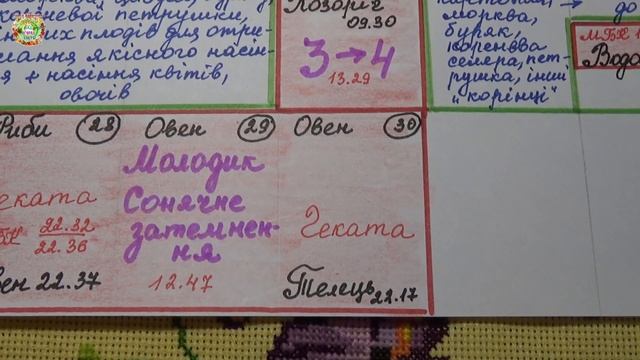 кореневої петрушки,
плодів для отри-
мання якісного насін-
ня + насіння квітів,
овочів
Козоріг
09.30
3→4
13.29
морква,
буряк,
коренева
селера, пет-
рушка, інші
„корінці"
до
МБК
Риби 28
Геката
22.32
22.36
Овен 22.37
Овен 29
Молодик
Сонячне
затемнен-
ня
12.47
Овен 30
Геката
Телець 22.17